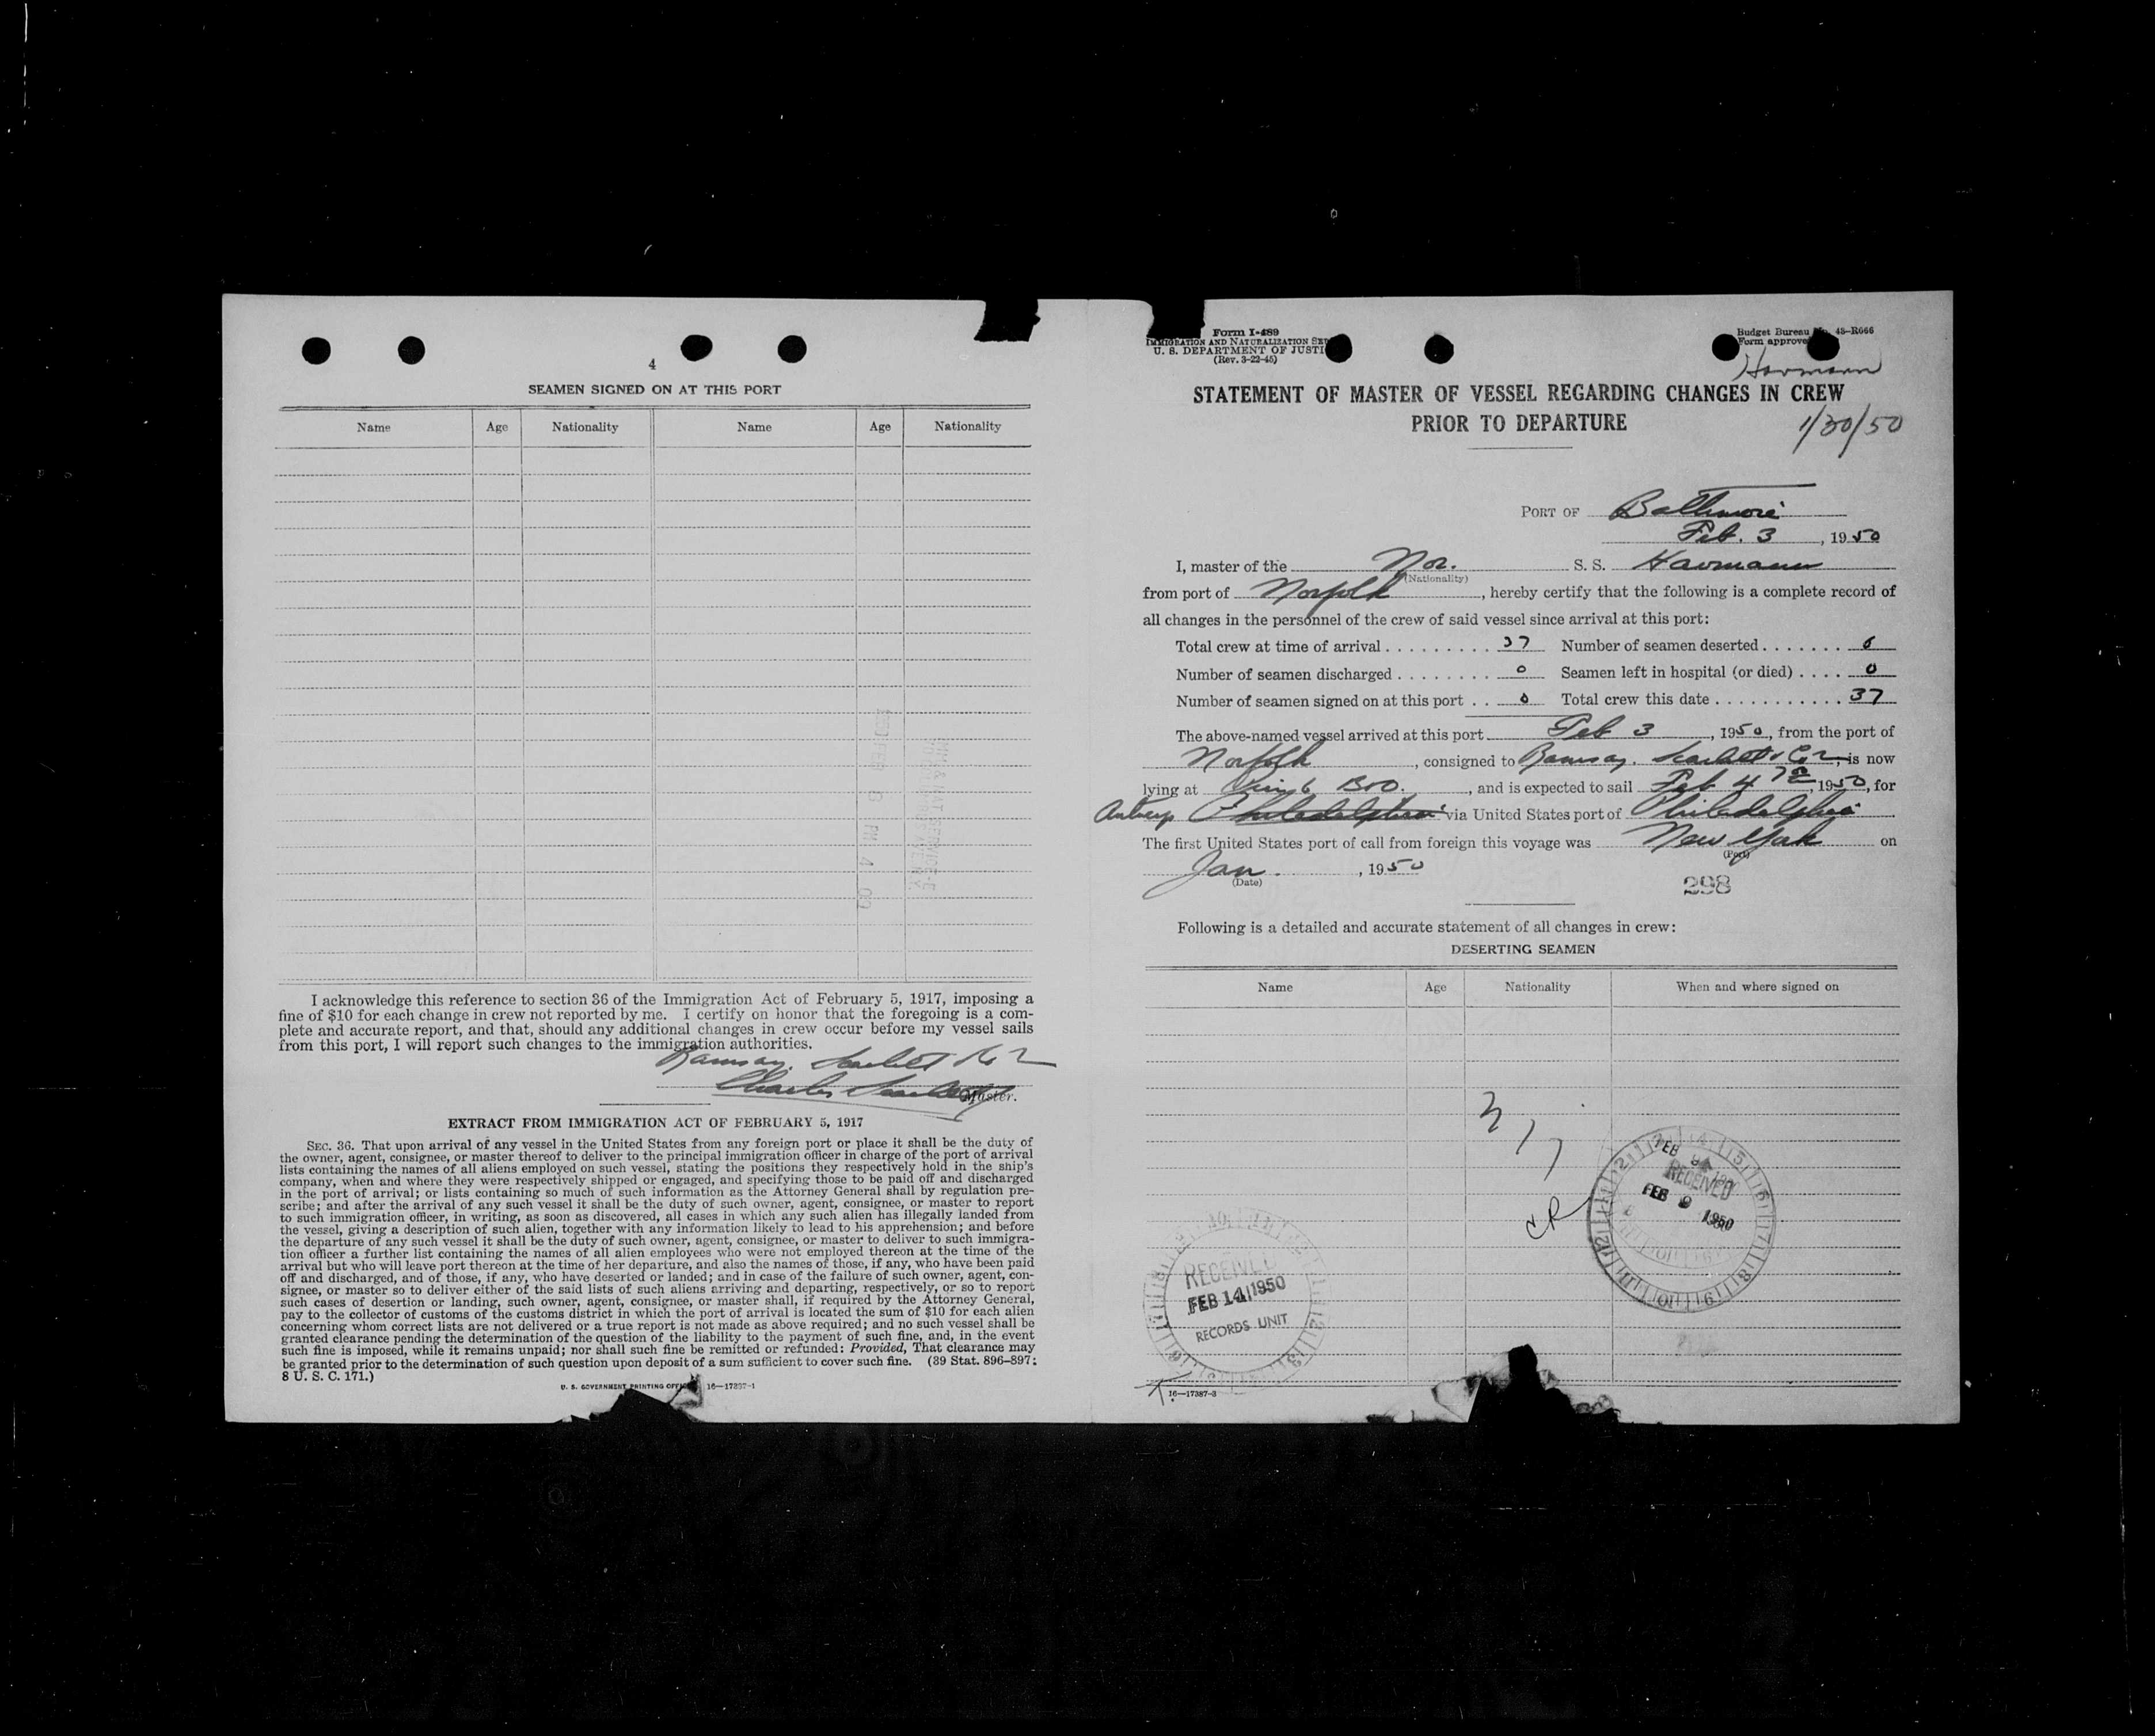 4
SEAMEN SIGNED ON AT THIS PORT
Name Age Nationality Name Age Nationality
I acknowledge this reference to section 36 of the Immigration Act of February 5, 1917, imposing a
fine of $10 for each change in crew not reported by me. I certify on honor that the foregoing is a com-
plete and accurate report, and that, should any additional changes in crew occur before my vessel sails
from this port, I will report such changes to the immigration authorities.
Ramsay, Scarlett & Co
Charles
Master.
EXTRACT FROM IMMIGRATION ACT OF FEBRUARY 5, 1917
SEC. 36. That upon arrival of any vessel in the United States from any foreign port or place it shall be the duty of
the owner, agent, consignee, or master thereof to deliver to the principal immigration officer in charge of the port of arrival
lists containing the names of all aliens employed on such vessel, stating the positions they respectively hold in the ship's
company, when and where they were respectively shipped or engaged, and specifying those to be paid off and discharged
in the port of arrival; or lists containing so much of such information as the Attorney General shall by regulation pre-
scribe; and after the arrival of any such vessel it shall be the duty of such owner, agent, consignee, or master to report
to such immigration officer, in writing, as soon as discovered, all cases in which any such alien has illegally landed from
the vessel, giving a description of such alien, together with any information likely to lead to his apprehension; and before
the departure of any such vessel it shall be the duty of such owner, agent, consignee, or master to deliver to such immigra-
tion officer a further list containing the names of all alien employees who were not employed thereon at the time of the
arrival but who will leave port thereon at the time of her departure, and also the names of those, if any, who have been paid
off and discharged, and of those, if any, who have deserted or landed; and in case of the failure of such owner, agent, con-
signee, or master so to deliver either of the said lists of such aliens arriving and departing, respectively, or so to report
such cases of desertion or landing, such owner, agent, consignee, or master shall, if required by the Attorney General,
pay to the collector of customs of the customs district in which the port of arrival is located the sum of $10 for each alien
concerning whom correct lists are not delivered or a true report is not made as above required; and no such vessel shall be
granted clearance pending the determination of the question of the liability to the payment of such fine, and, in the event
such fine is imposed, while it remains unpaid; nor shall such fine be remitted or refunded: Provided, That clearance may
be granted prior to the determination of such question upon deposit of a sum sufficient to cover such fine. (39 Stat. 896–897;
8 U. S. C. 171.)
U. S. GOVERNMENT PRINTING OFFICE 16—17387-1
Form I-489
IMMIGRATION AND NATURALIZATION SER
U. S. DEPARTMENT OF JUSTI
(Rev. 3-22-45)
Budget Bureau No. 43–R066
Form approve
Havmann
STATEMENT OF MASTER OF VESSEL REGARDING CHANGES IN CREW
PRIOR TO DEPARTURE
1/30/50
PORT OF Baltimore
Feb. 3, 1950
I, master of the Nor. S. S. Havmann
(Nationality)
from port of Norfolk, hereby certify that the following is a complete record of
all changes in the personnel of the crew of said vessel since arrival at this port:
Total crew at time of arrival . . . . . . . . . 37 Number of seamen deserted . . . . . . . 0
Number of seamen discharged . . . . . . . . 0 Seamen left in hospital (or died) . . . . 0
Number of seamen signed on at this port . . 0 Total crew this date . . . . . . . . . . . 37
The above-named vessel arrived at this port Feb 3, 1950, from the port of
Norfolk, consigned to Ramsay, Scarlett & Co, is now
lying at B&O., and is expected to sail Feb 4, 1950, for
Antwerp Philadelphia via United States port of Philadelphia
The first United States port of call from foreign this voyage was New York on
(Port)
Jan., 1950
(Date)
298
Following is a detailed and accurate statement of all changes in crew:
DESERTING SEAMEN
Name Age Nationality When and where signed on
CR
FEB
RECEIVED
FEB 9 1950
RECEIVED
FEB 14 1950
RECORDS UNIT
16—17387-3